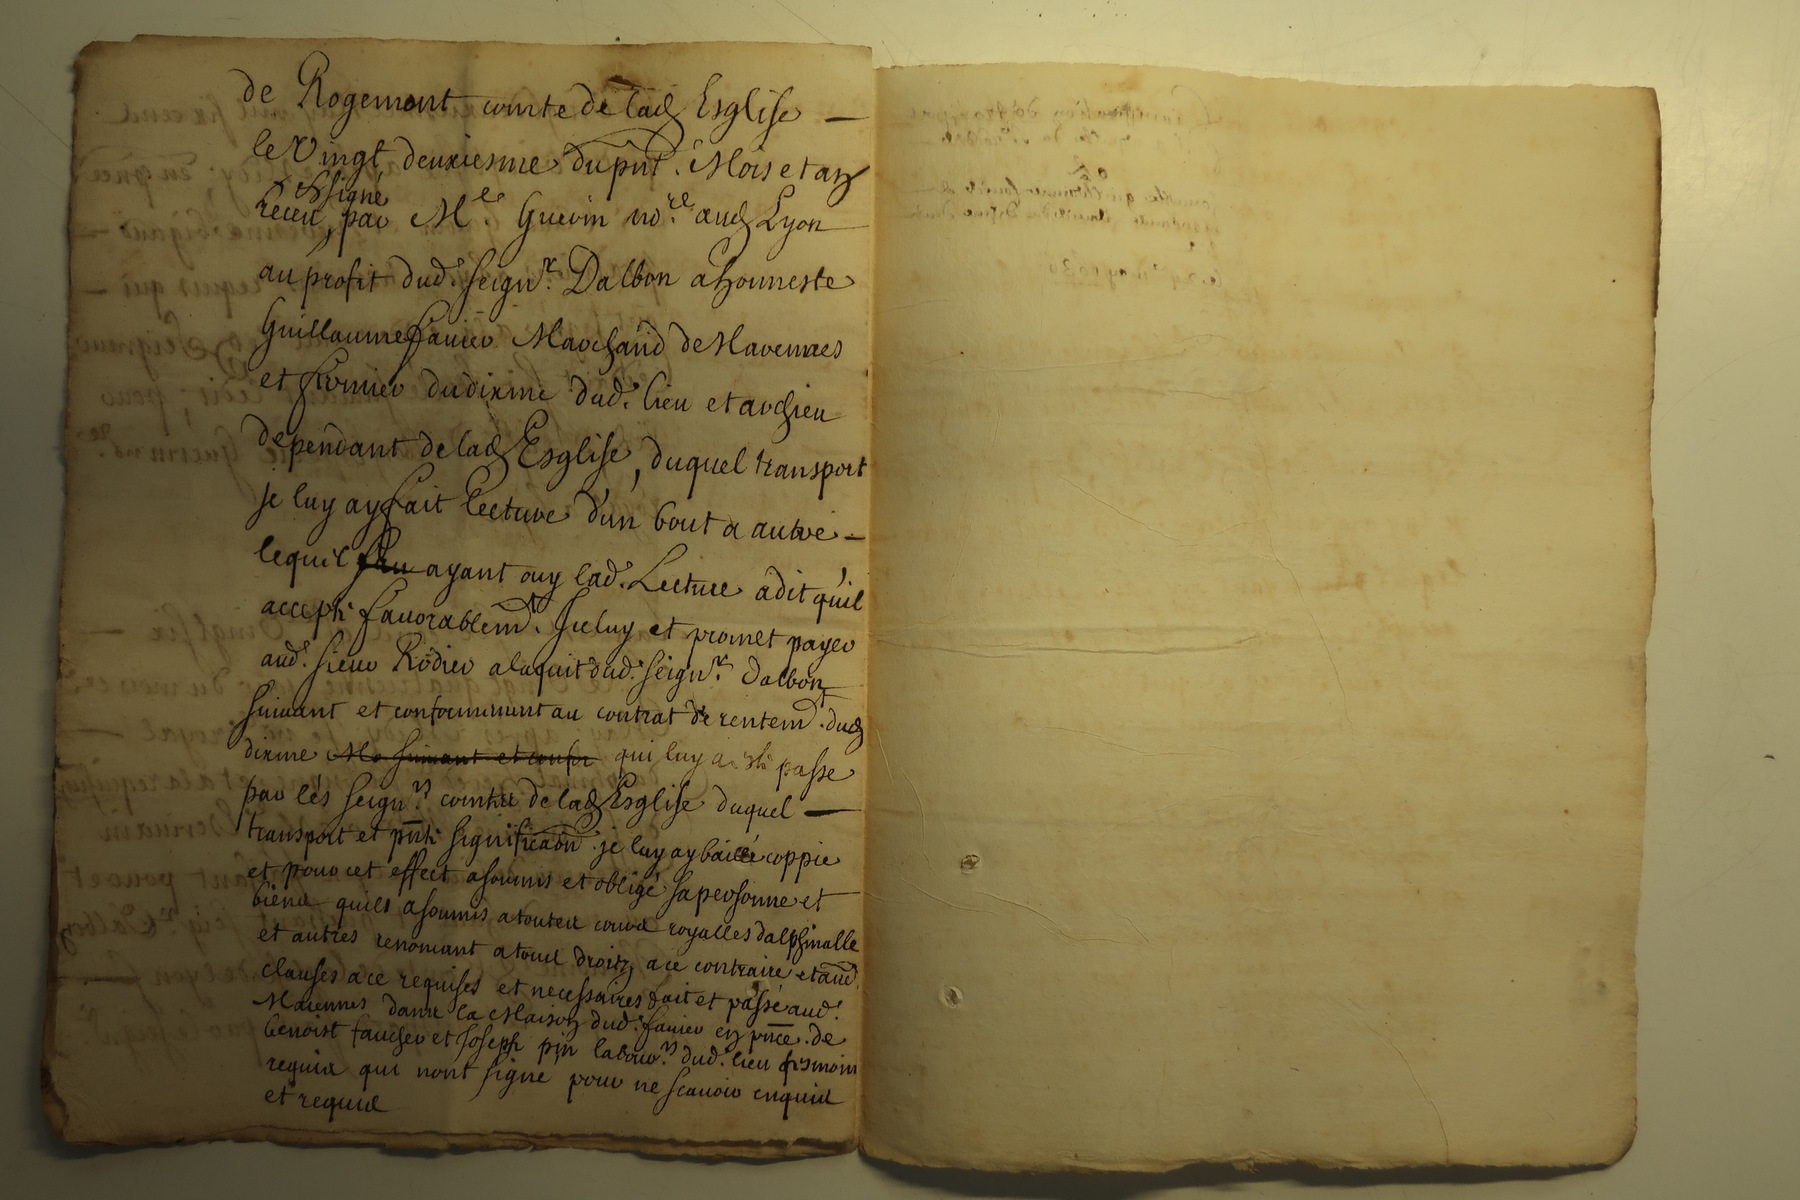 de Rogemont comte de lad Esglise
le Vingt deuxiesme du pnt. Mois et an
& signé
receu, par Me. Guerin nore. aud Lyon
au profit dud. seignr. Dalbon a honneste
Guillaume favier Marchand de Marennes
et fermier du dixme dud. lieu et archieu
dependant de lad Esglise, duquel transport
je luy ay fait Lecture d'un bout a autre
lequel ayant ouy lad. Lecture a dit qu'il
accepte favorablemt. Iceluy et promet payer
aud. sieur Rodier a laquit dud. seignr. Dalbon
suivant et conformement au contrat de rentemt. dud
dixme suivant et confor qui luy a esté passe
par les seignrs comtes de lad Esglise duquel
transport et pnte significaon. je luy ay baillé coppie
et pour cet effect a soumis et obligé sa personne et
biens quil a soumis a toutes cours royalles dalphinalle
et autres renoncant a tous droitz a ce contraire et aud
clauses a ce requises et necessaires fait et passé aud.
Marennes dans la Maison dud. favier en pnce. de
benoist faucher et Joseph pin labours. dud. lieu tesmoins
requis qui nont signé pour ne scavoir enquis
et requis